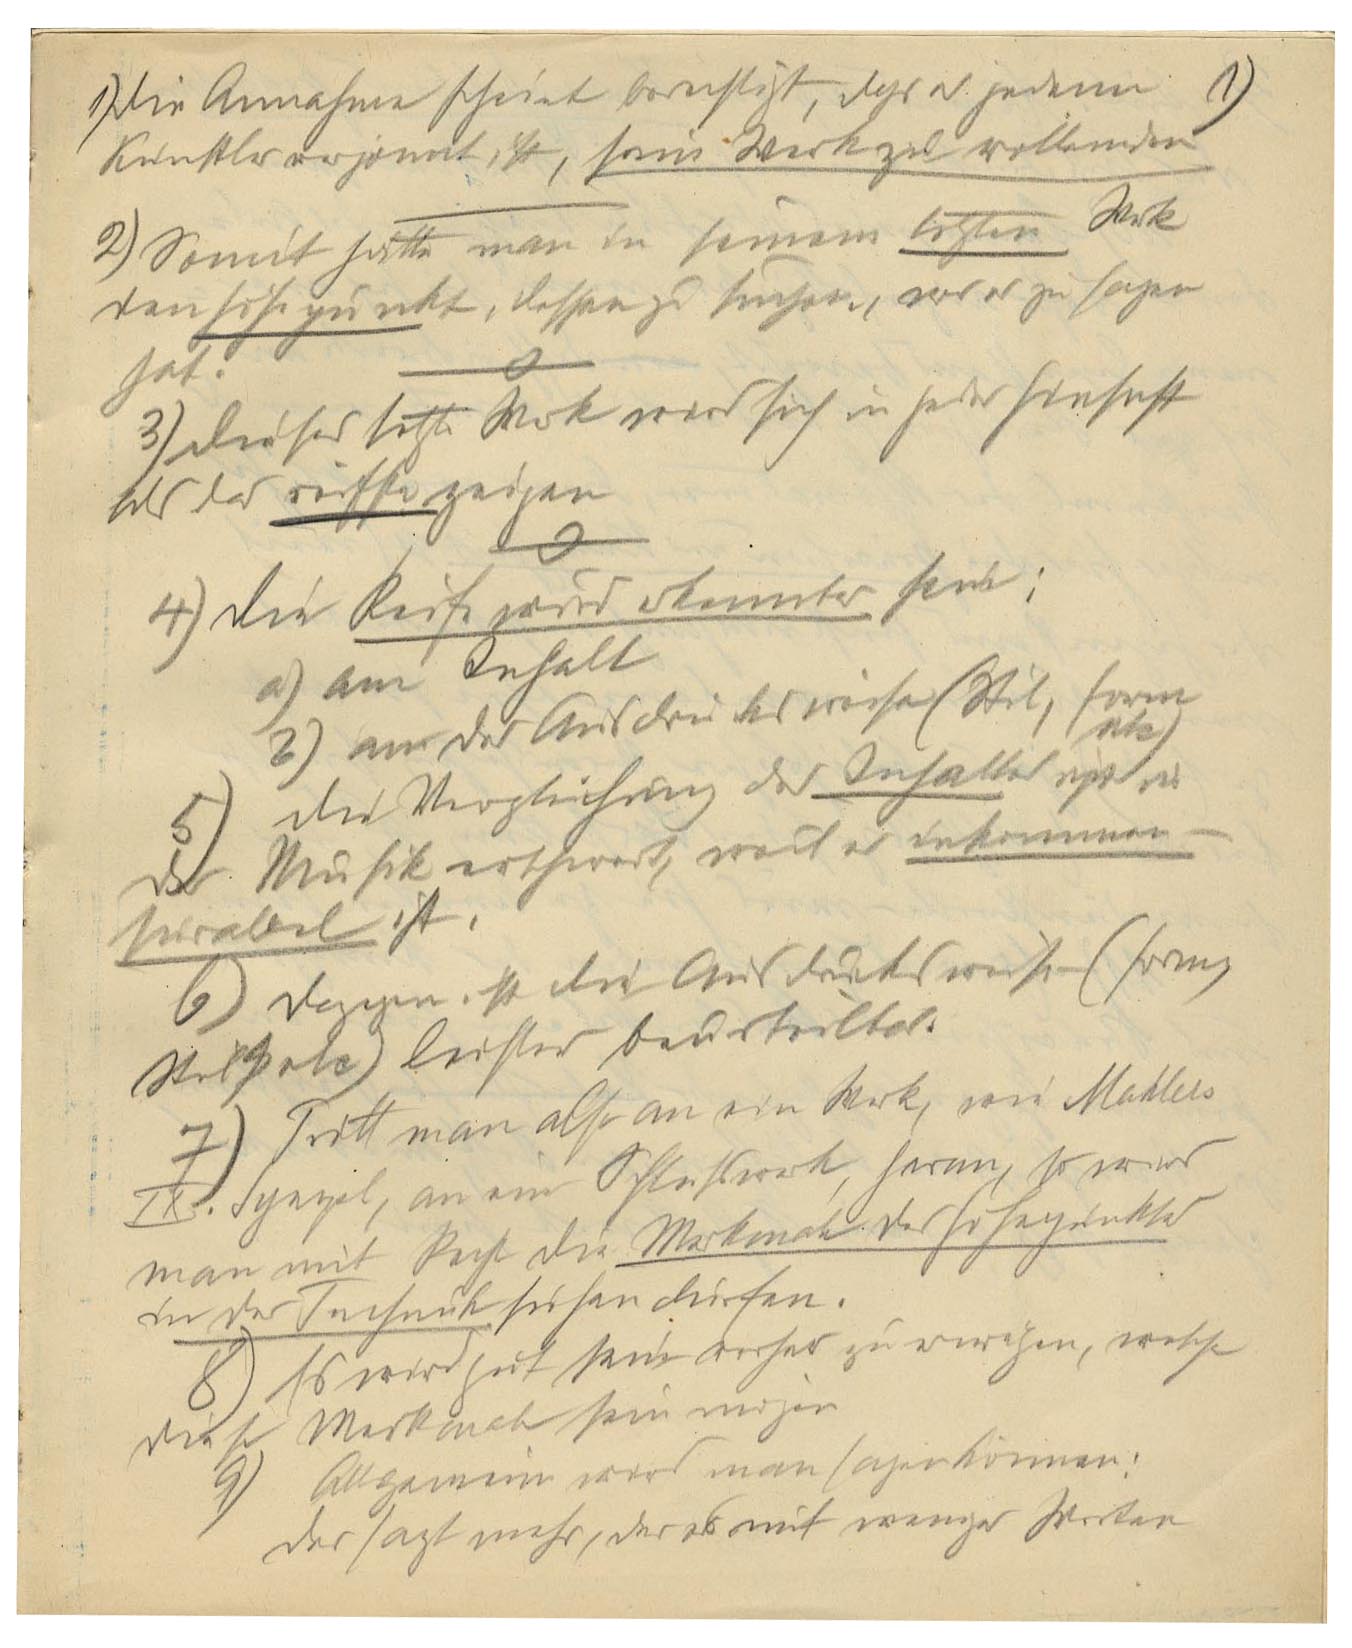 1) Die Annahme scheint berechtigt, dass es jedem 1)
Künstler vergönnt ist, sein Werk zu vollenden
2) Somit hätte man in seinem letzten Werk
den Höhepunkt dessen zu suchen, was er zu sagen
hat.
3) Dieses letzte Werk wird sich in jeder Hinsicht
als das reifste zeigen
4) Die Reife wird erkennbar sein:
a) am Inhalt
b) an der Ausdrucksweise (Stil, Form
etc)
5) Die Vergleichung des Inhaltes ist in
der Musik erschwert, weil er inkommen-
surabel ist.
6) Dagegen ist die Ausdrucksweise (Form,
Stil etc) leichter beurteilbar.
7) Tritt man also an ein Werk, wie Mahlers
IX. Symph, an ein Schlußwerk, heran, so wird
man mit Recht die Merkmale des Höhepunktes
in der Technik suchen dürfen.
8) Es wird gut sein vorher zu erwägen, welche
diese Merkmale sein mögen
9) Allgemein wird man sagen können:
der sagt mehr, der es mit weniger Worten